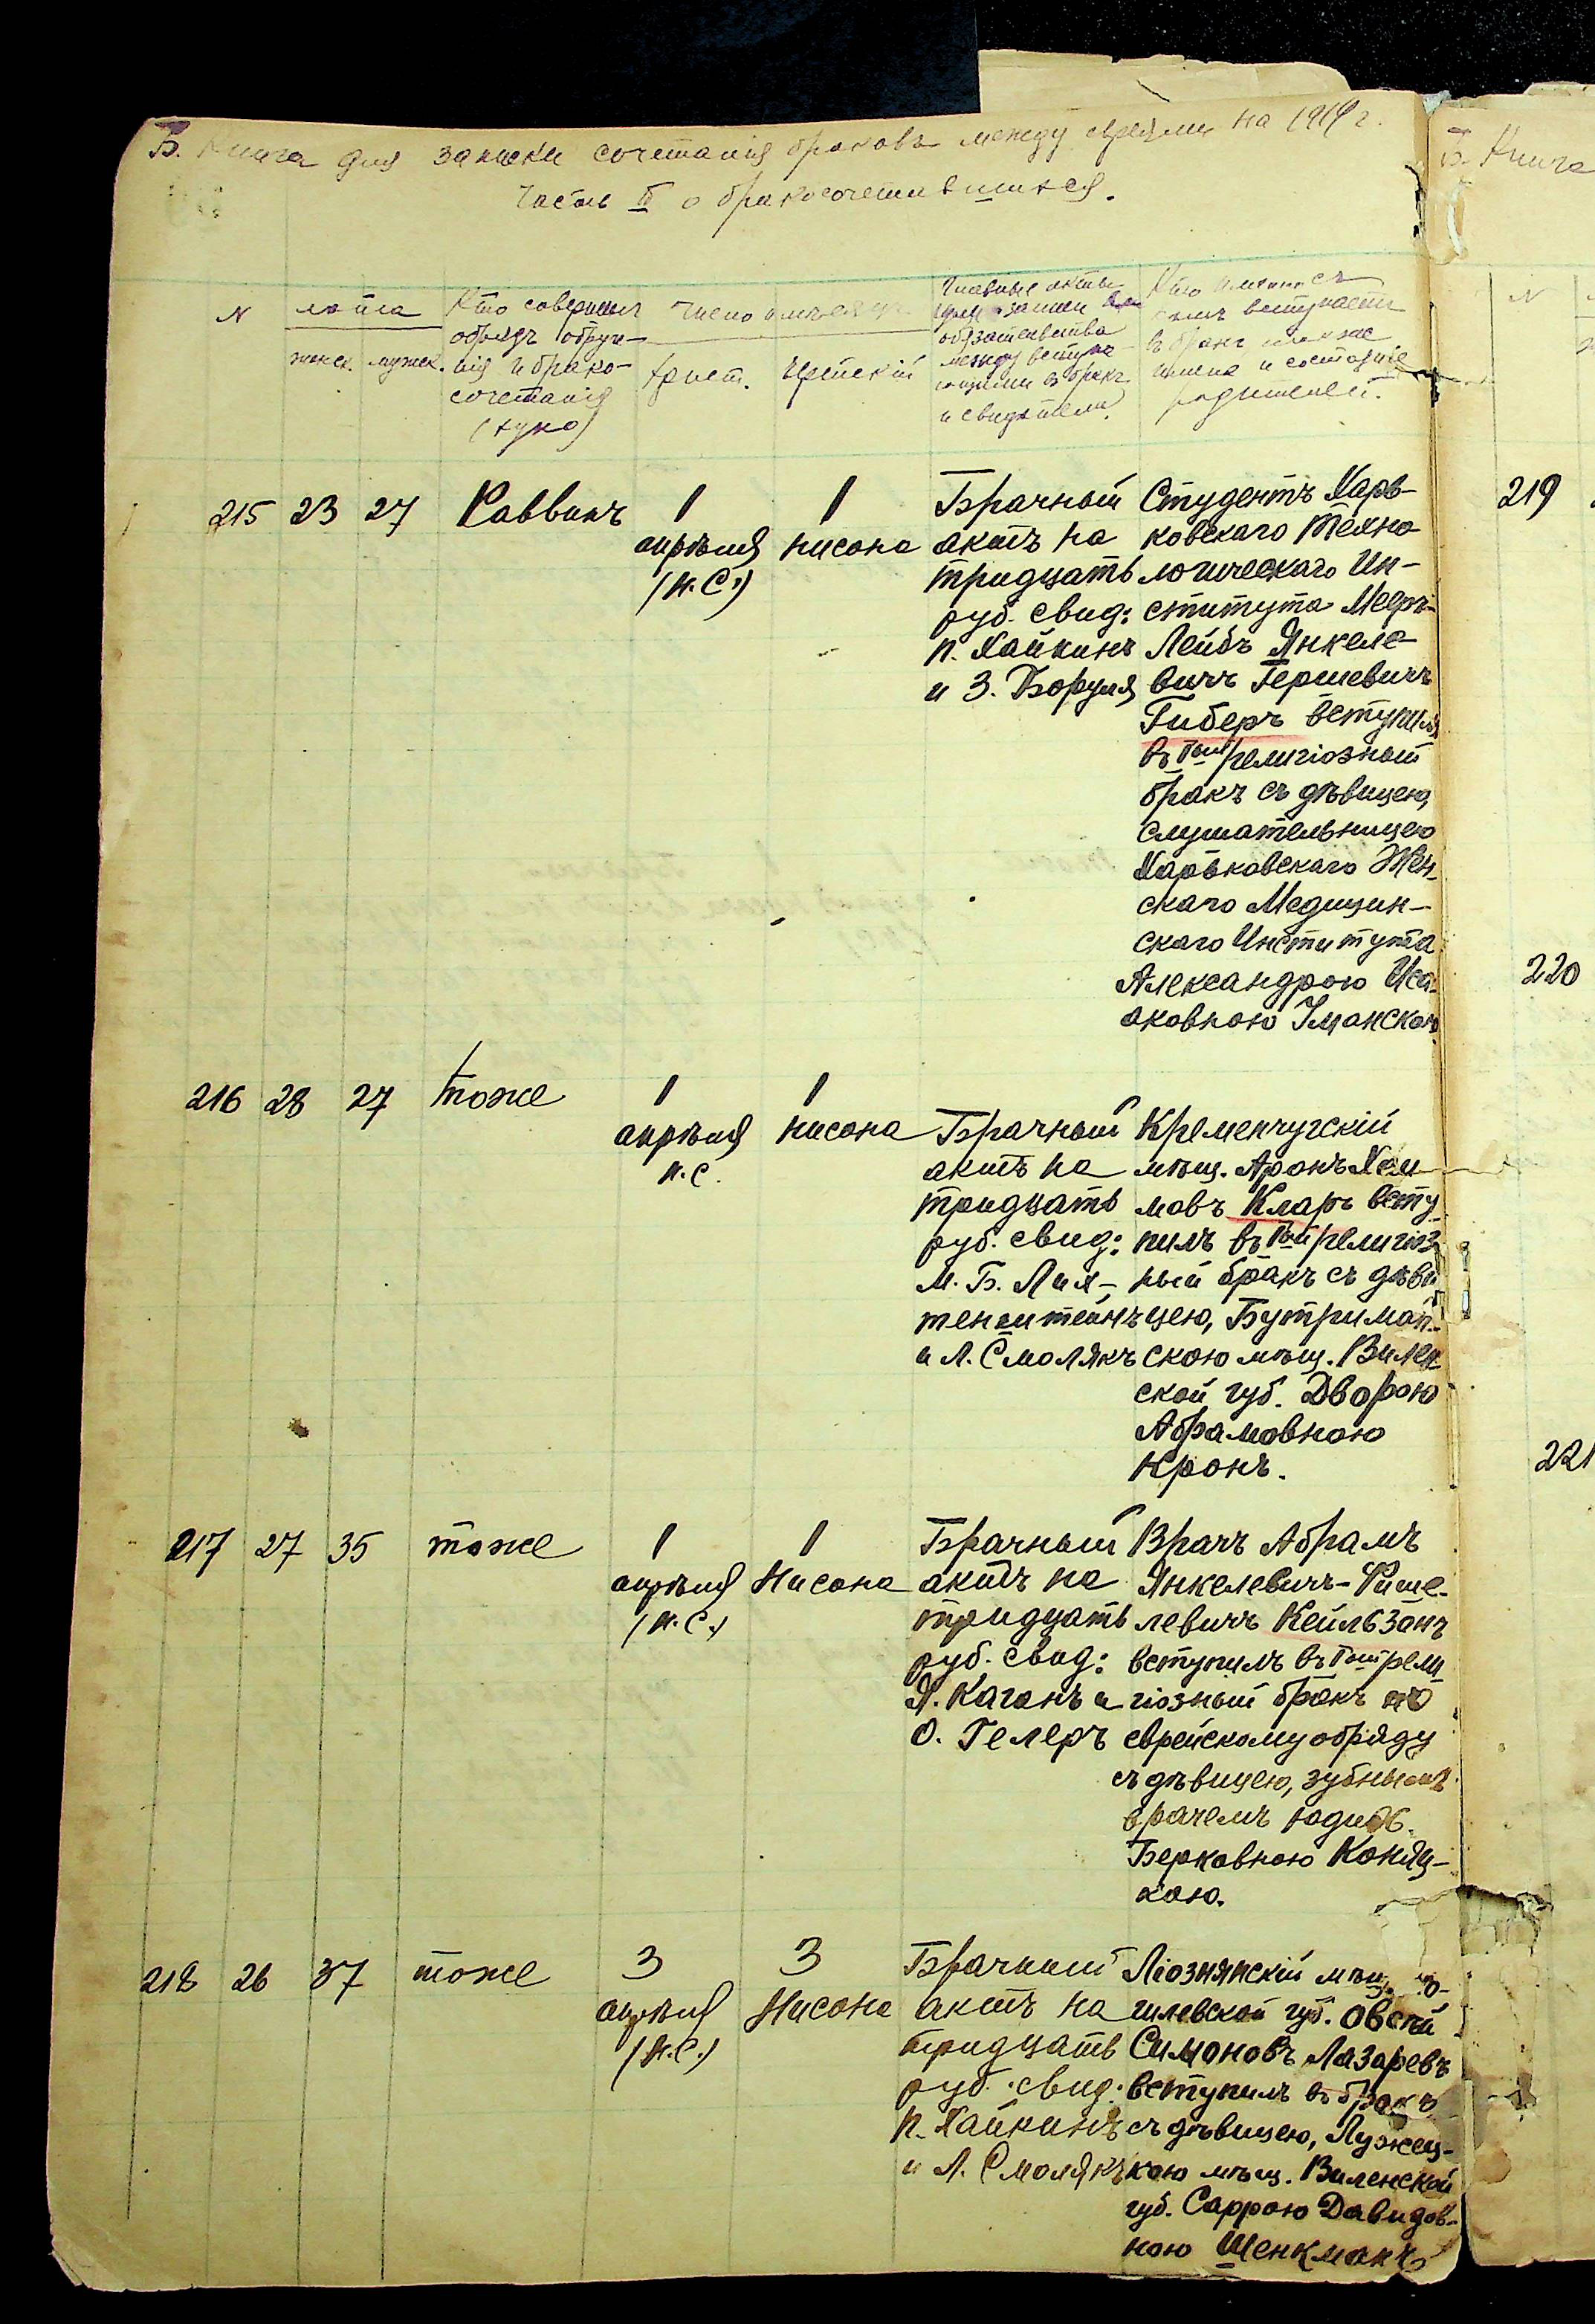 Б. Книга для записки сочетанія браковъ между евреями на 1919 г.
Часть II о бракосочетавшихся.
№
лѣта
женск. мужск.
Кто совершалъ
обрядъ обруче-
нія и брако-
сочетанія
(хупо)
Число и мѣсяцъ
Христ. Еврейскій
Главные акты
или записи
обязательства
между вступа-
ющими въ бракъ
и свидѣтели.
Кто именно съ
кѣмъ вступаетъ
въ бракъ также
имена и состояніе
родителей.
215 23 27 Раввинъ
1
апрѣля
(н.С.)
1
нисона
Брачный
актъ на
тридцать
руб. свид:
П. Хайкинъ
и З. Боруля
Студентъ Харь-
ковскаго Техно
логическаго Ин-
ститута Мееръ-
Лейбъ Янкеле-
вичъ Гершевичъ
Гиберъ вступилъ
въ 1ый религіозный
бракъ съ дѣвицею,
слушательницею
Харьковскаго Жен-
скаго Медицин-
скаго Института
Александрою Иса-
аковною Уманскою
216 28 27 тоже
1
апрѣля
н.с.
1
нисона
Брачный
актъ на
тридцать
руб. свид:
М. Б. Лих-
тенштейнъ
и Л. Смолякъ
Кременчугскій
мѣщ. Аронъ Хаи
мовъ Кларъ всту
пилъ въ 1ый религіоз
ный бракъ съ дѣви
цею, Бутриман-
скою мѣщ. Вилен-
ской губ. Дворою
Абрамовною
Кронъ.
217 27 35 тоже
1
апрѣля
(н.С.)
1
Нисона
Брачный
актъ на
тридцать
руб. свид:
Я. Каганъ и
О. Гелеръ
Врачъ Абрамъ
Янкелевичъ-Фише-
левичъ Кейльзонъ
вступилъ въ 1ый рели
гіозный бракъ по
еврейскому обряду
съ дѣвицею, зубнымъ
врачемъ Юдиөь
Берковною Коняц-
кою.
218 26 37 тоже
3
апрѣля
(н.С.)
3
Нисона
Брачный
актъ на
тридцать
руб. свид:
П. Хайкинъ
и Л. Смолякъ
Ліознянскій мѣщ. Мо-
гилевской губ. Овсей
Симоновъ Лазаревъ
вступилъ въ бракъ
съ дѣвицею, Лужец-
кою мѣщ. Виленской
губ. Саррою Давидов-
ною Шенкманъ
Б. Книга
№
219
220
221